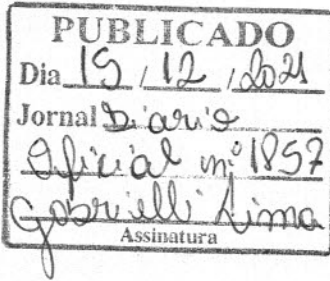 PUBLICADO
Dia 15 / 12 / 2021
Jornal Diario
Oficial nº 1857
Gabrielli Lima
Assinatura